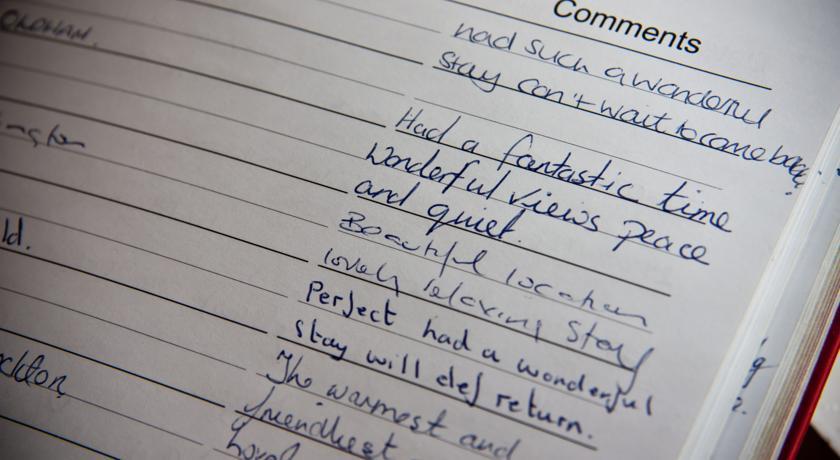 Comments
OLDHAM.
had such a wonderful
stay can't wait to come back
Had a fantastic time
Wonderful views peace
and quiet.
Beautiful location
lovely relaxing stay
Perfect had a wonderful
stay will def return.
ld.
The warmest and
friendliest